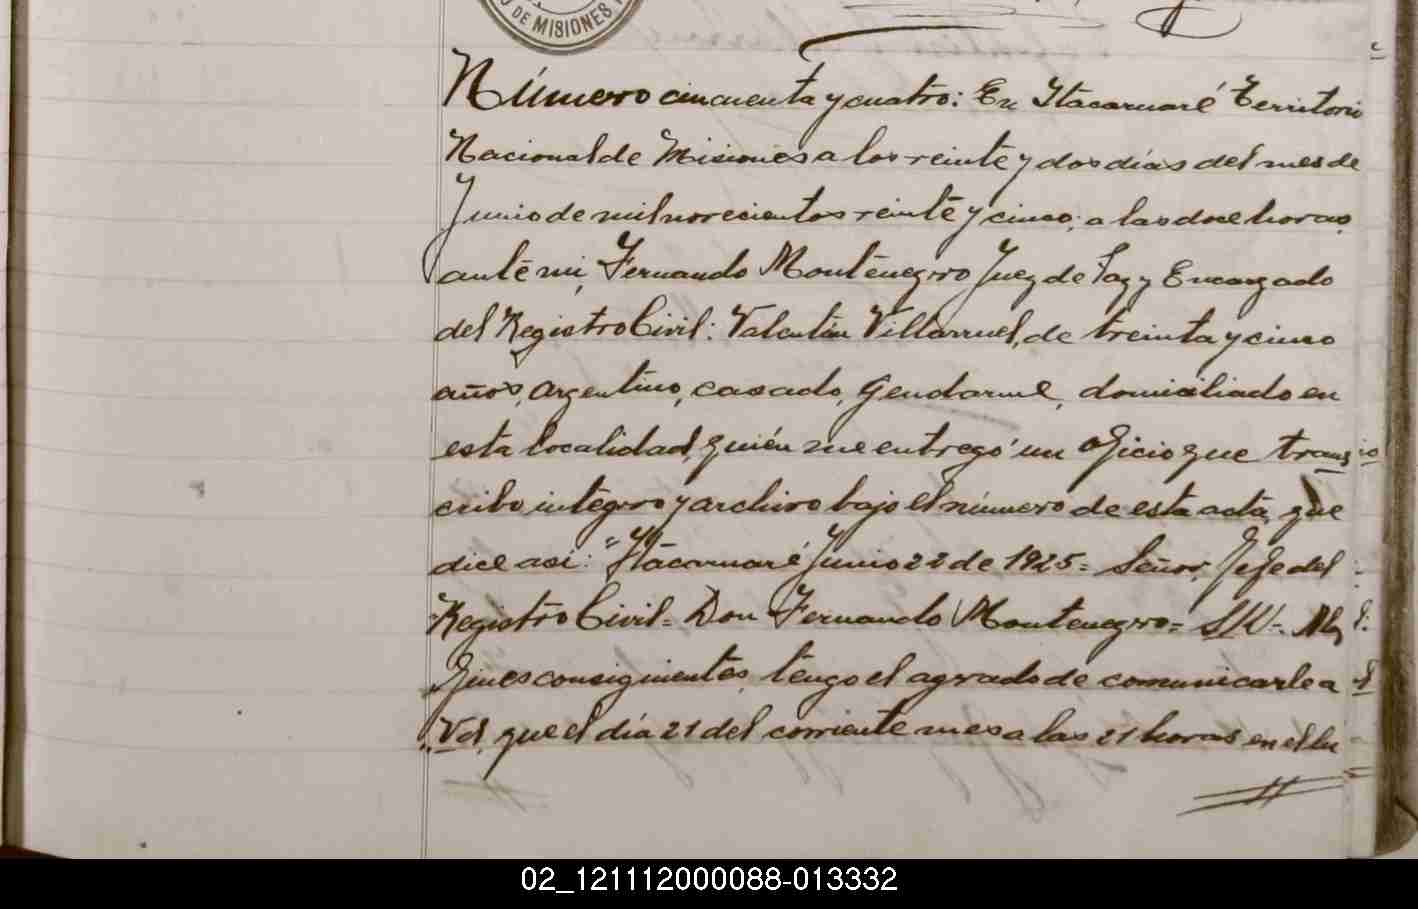 DE MISIONES
Número cincuenta y cuatro: En Itacaruaré Territorio
Nacional de Misiones a los veinte y dos días del mes de
Junio de mil novecientos veinte y cinco, a las doce horas,
ante mi, Fernando Montenegro Juez de Paz y Encargado
del Registro Civil: Valentin Villarruel, de treinta y cinco
años, argentino, casado, Gendarme, domiciliado en
esta localidad, quién me entregó un oficio que trans
cribo integro y archivo bajo el número de esta acta, que
dice asi: "Itacaruaré Junio 22 de 1925= Señor, Jefe del
Registro Civil= Don Fernando Montenegro= S/D=. A los
fines consiguientes, tengo el agrado de comunicarle a
Vd, que el día 21 del corriente mes a las 21 horas en el lu
02_121112000088-013332